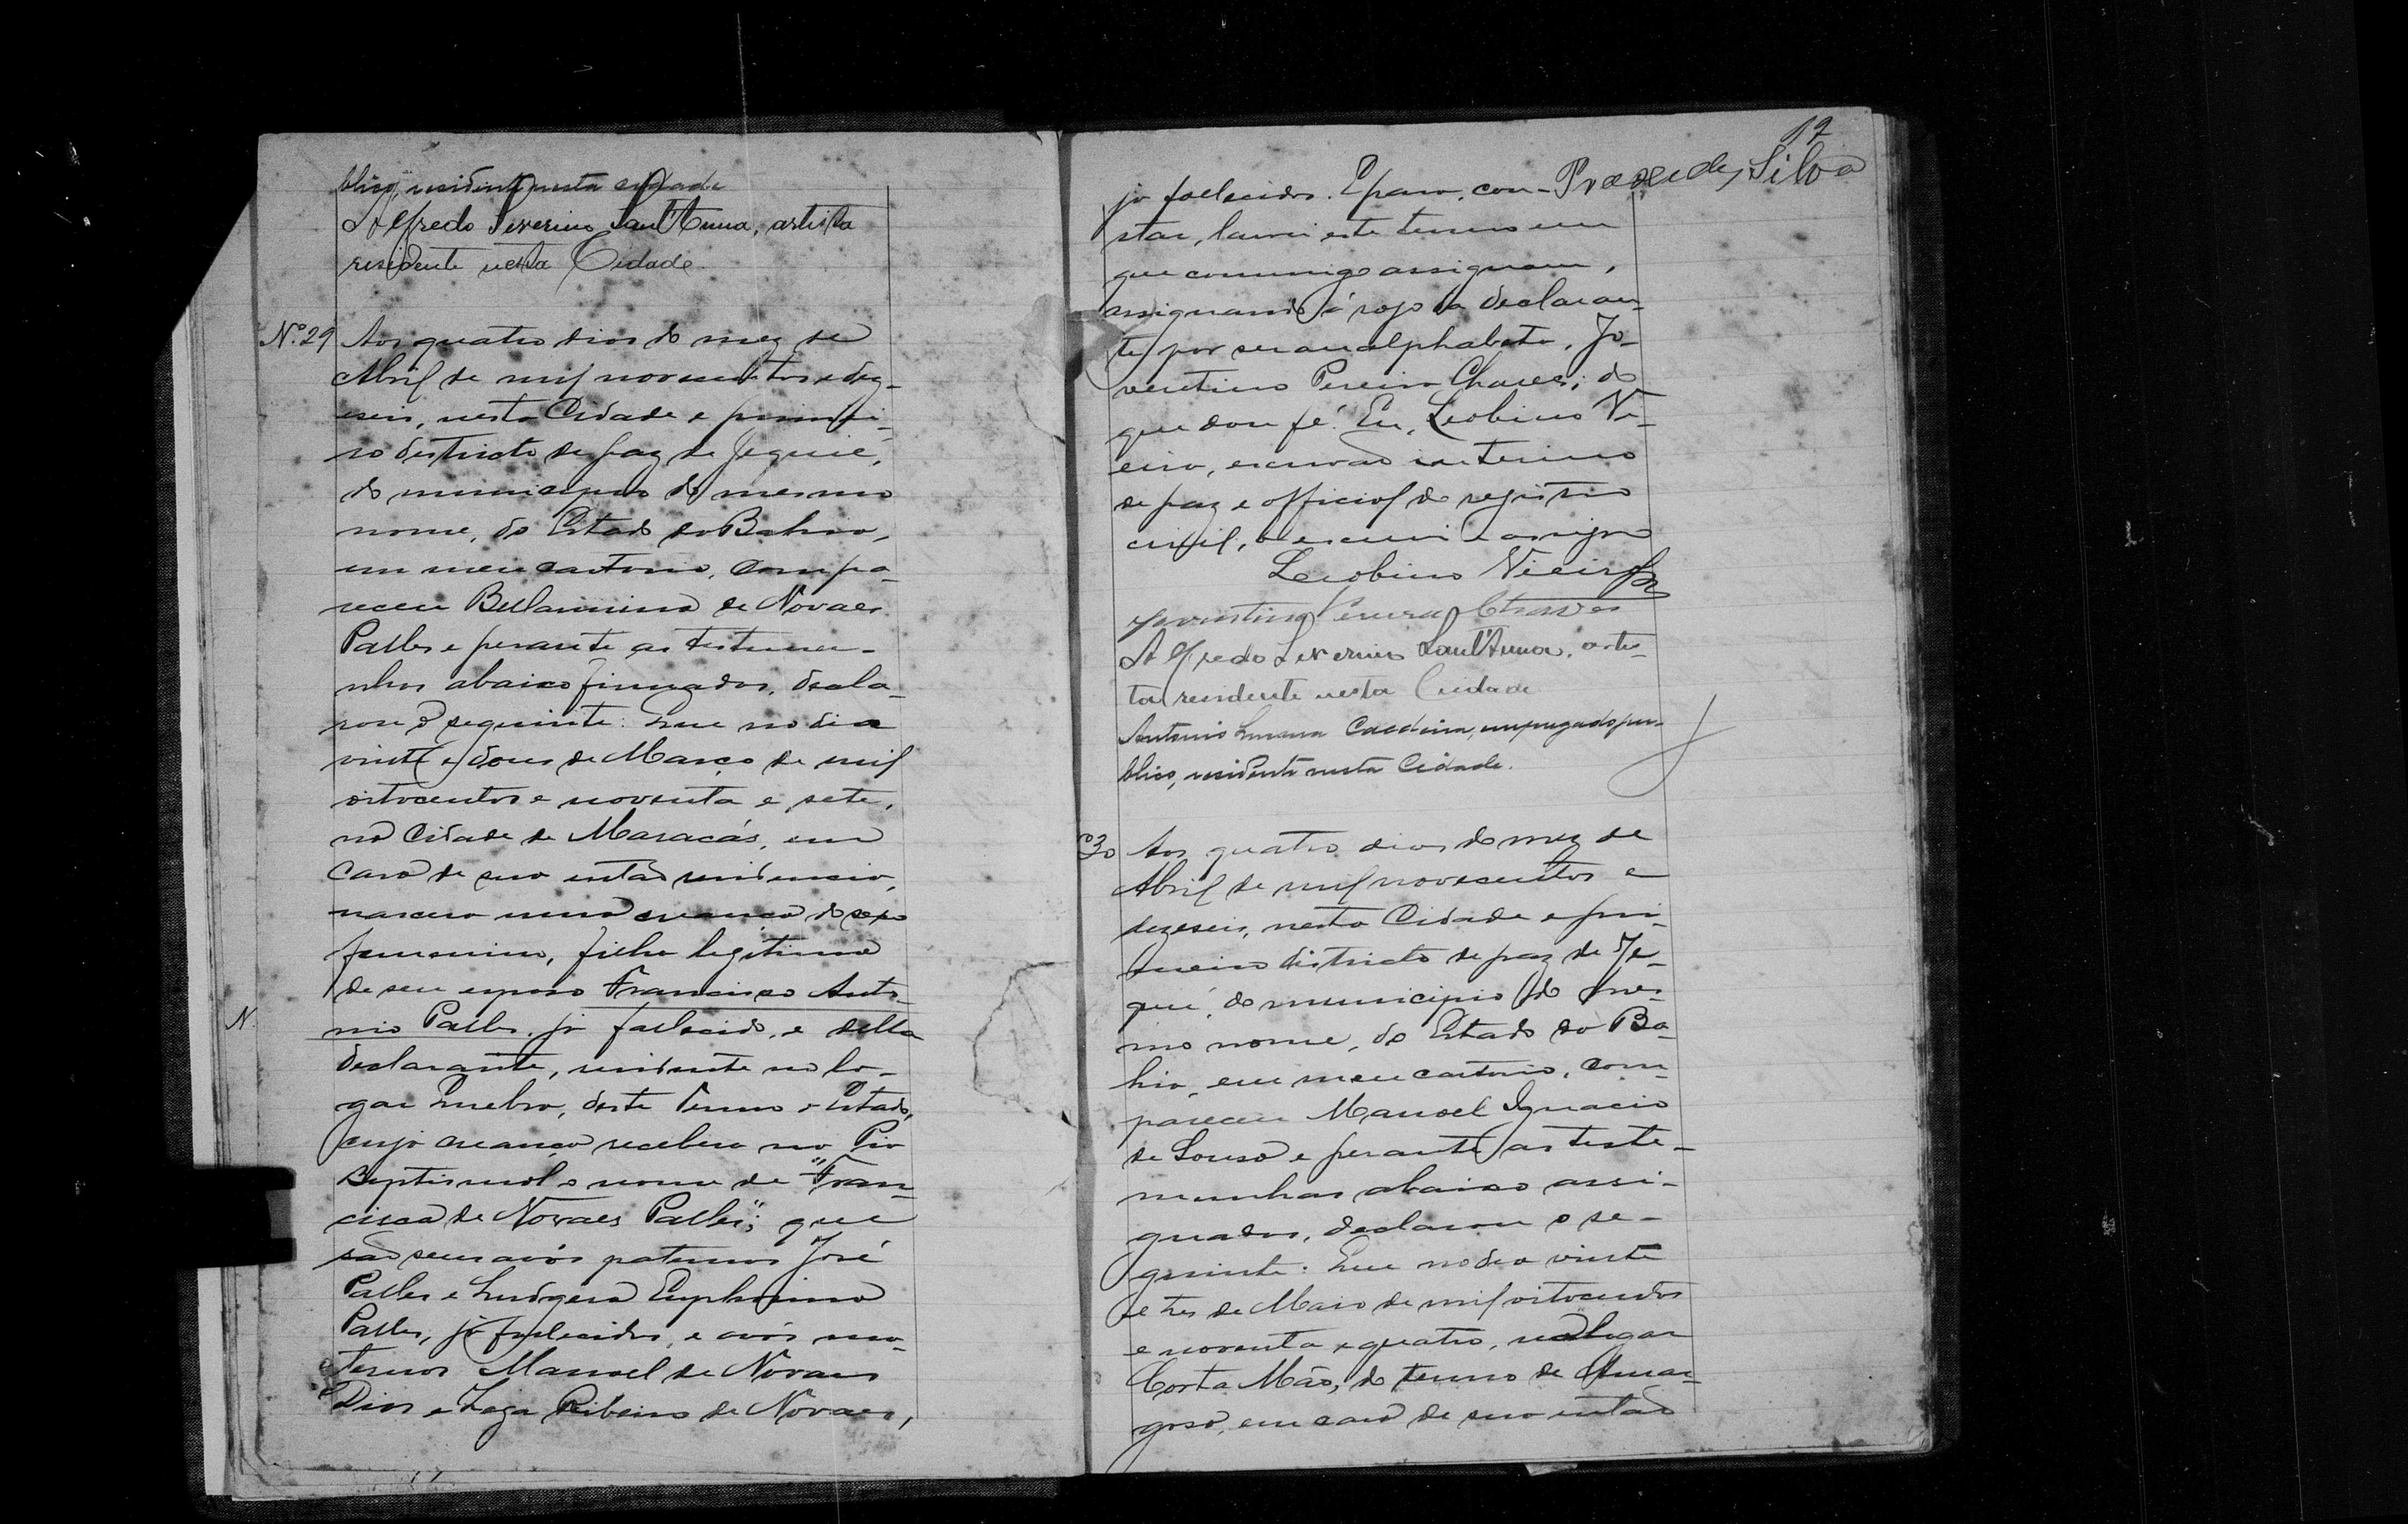 blico, residente nesta cidade
Alfredo Severino Sant'Anna, artista
residente nesta Cidade.
Nº 29
Aos quatro dias do mez de
Abril de mil novecentos e dez-
eseis, nesta Cidade e primei-
ro districto de paz de Jequié,
do municipio do mesmo
nome, do Estado da Bahia,
em meu cartorio, compa-
receu Bellarmina de Novaes
Palles e perante as testemu-
nhas abaixo firmadas, decla-
rou o seguinte: Que no dia
vinte e dous de Março de mil
oitocentos e noventa e sete,
na Cidade de Maracás, em
casa de sua então residencia,
nascera uma creança do sexo
femenino, filha legitima
de seu esposo Francisco Anto-
N.
nio Palles, já fallecido, e della
declarante, residente no lo-
gar Quebra, deste Termo e Estado,
cuja creança recebera na Pia
Baptismal o nome de "Fran-
cisca de Novaes Palles"; que
são seus avós paternos José
Palles e Ludgera Euphrasina
Palles, já fallecidos, e avós ma-
ternos Manoel de Novaes
Dias e Ribeiro de Novaes,
12
Praxedes Silva
já fallecidos. E para con-
star, lavrei este termo em
que commigo assignam,
assignando á rogo da declaran-
te, por ser analphabeta, Jo-
ventino Pereira Chaves; do
que dou fé. Eu, Leobino Vi-
eira, escrivão interino
de paz e official do registro
civil, o escrevi e assigno
Leobino Vieira
Joventino Pereira Chaves
Alfredo Severino Sant'Anna, artis-
ta residente nesta Cidade
Antonio Caldeira, empregado pu-
blico, residente nesta Cidade.
º30
Aos quatro dias do mez de
Abril de mil novecentos e
dezeseis, nesta Cidade e pri-
meiro districto de paz de Je-
quié, do municipio do mes-
mo nome, do Estado da Ba-
hia, em meu cartorio, com-
pareceu Manoel Ignacio
de Sousa e perante as teste-
munhas abaixo assi-
gnadas, declarou o se-
guinte: Que no dia vinte
e tres de Maio de mil oitocentos
e noventa e quatro, no logar
Corta Mão, do termo de Amar-
gosa, em casa de sua então